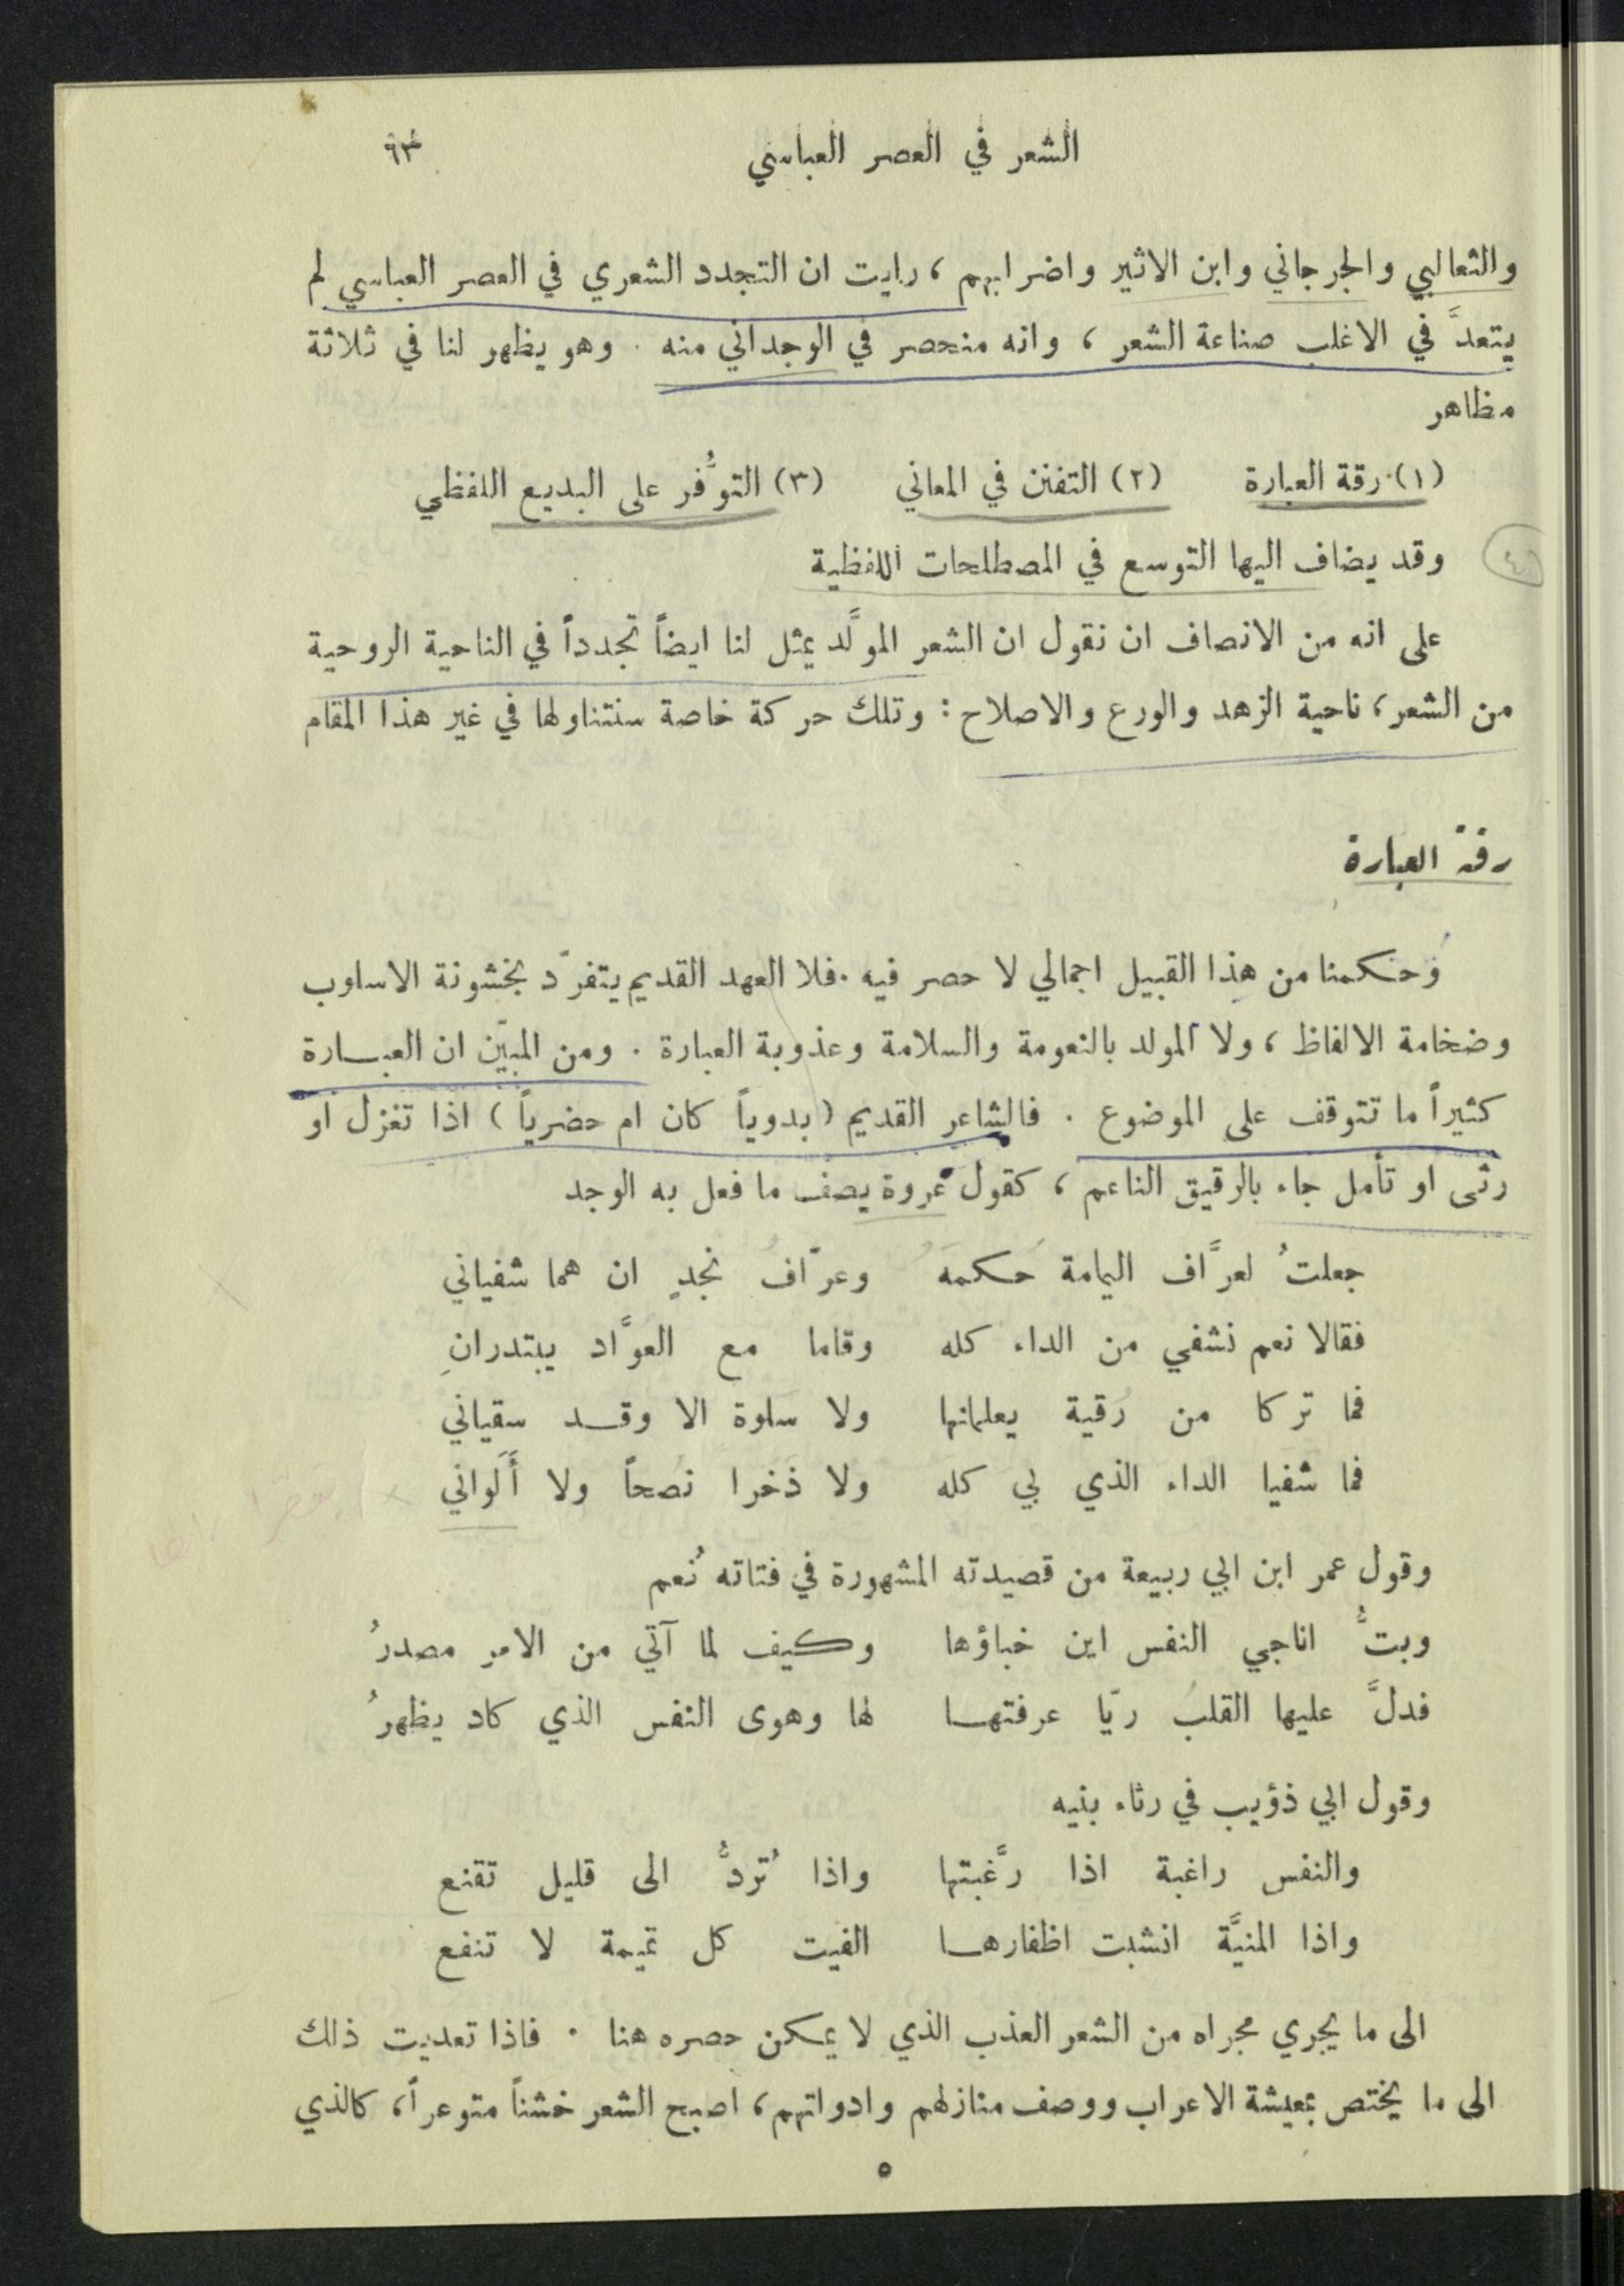 الشعر في العصر العباسي ٦٣
والثعالبي والجرجاني وابن الاثير واضرابهم ، رايت ان التجدد الشعري في العصر العباسي لم
يتعدَّ في الاغلب صناعة الشعر ، وانه منحصر في الوجداني منه . وهو يظهر لنا في ثلاثة
مظاهر
(١) رقة العبارة (٢) التفنن في المعاني (٣) التوفُّر على البديع اللفظي
وقد يضاف اليها التوسع في المصطلحات اللفظية
على انه من الانصاف ان نقول ان الشعر المولَّد يمثل لنا ايضاً تجدداً في الناحية الروحية
من الشعر ، ناحية الزهد والورع والاصلاح : وتلك حركة خاصة سنتناولها في غير هذا المقام
رقة العبارة
وحكمنا من هذا القبيل اجمالي لا حصر فيه . فلا العهد القديم يتفرّد بخشونة الاسلوب
وضخامة الالفاظ ، ولا المولد بالنعومة والسلامة وعذوبة العبارة . ومن المبيّن ان العبارة
كثيراً ما تتوقف على الموضوع . فالشاعر القديم ( بدوياً كان ام حضرياً ) اذا تغزل او
رثى او تأمل جاء بالرقيق الناعم ، كقول عروة يصف ما فعل به الوجد
جعلتُ لعرَّاف اليمامة حَكمَهُ وعرّافُ نجدٍ ان هما شفياني
فقالا نعم نشفي من الداء كله وقاما مع العوَّاد يبتدرانِ
فما تركا من رُقية يعلمانها ولا سَلوة الا وقد سقياني
فما شَفيا الداء الذي بيَ كله ولا ذَخرا نُصحاً ولا أَلَواني
وقول عمر ابن ابي ربيعة من قصيدته المشهورة في فتاته نُعم
وبتُّ اناجي النفس اين خباؤها وكيف لما آتي من الامر مصدرُ
فدلَّ عليها القلبُ ريّا عرفتها لها وهوى النفس الذي كاد يظهرُ
وقول ابي ذؤيب في رثاء بنيه
والنفس راغبة اذا رغَّبتها واذا تُردُّ الى قليل تقنع
واذا المنيَّة انشبت اظفارها الفيت كل تميمة لا تنفع
الى ما يجري مجراه من الشعر العذب الذي لا يمكن حصره هنا . فاذا تعديت ذلك
الى ما يختص بمعيشة الاعراب ووصف منازلهم وادواتهم ، اصبح الشعر خشناً متوعراً ، كالذي
٥